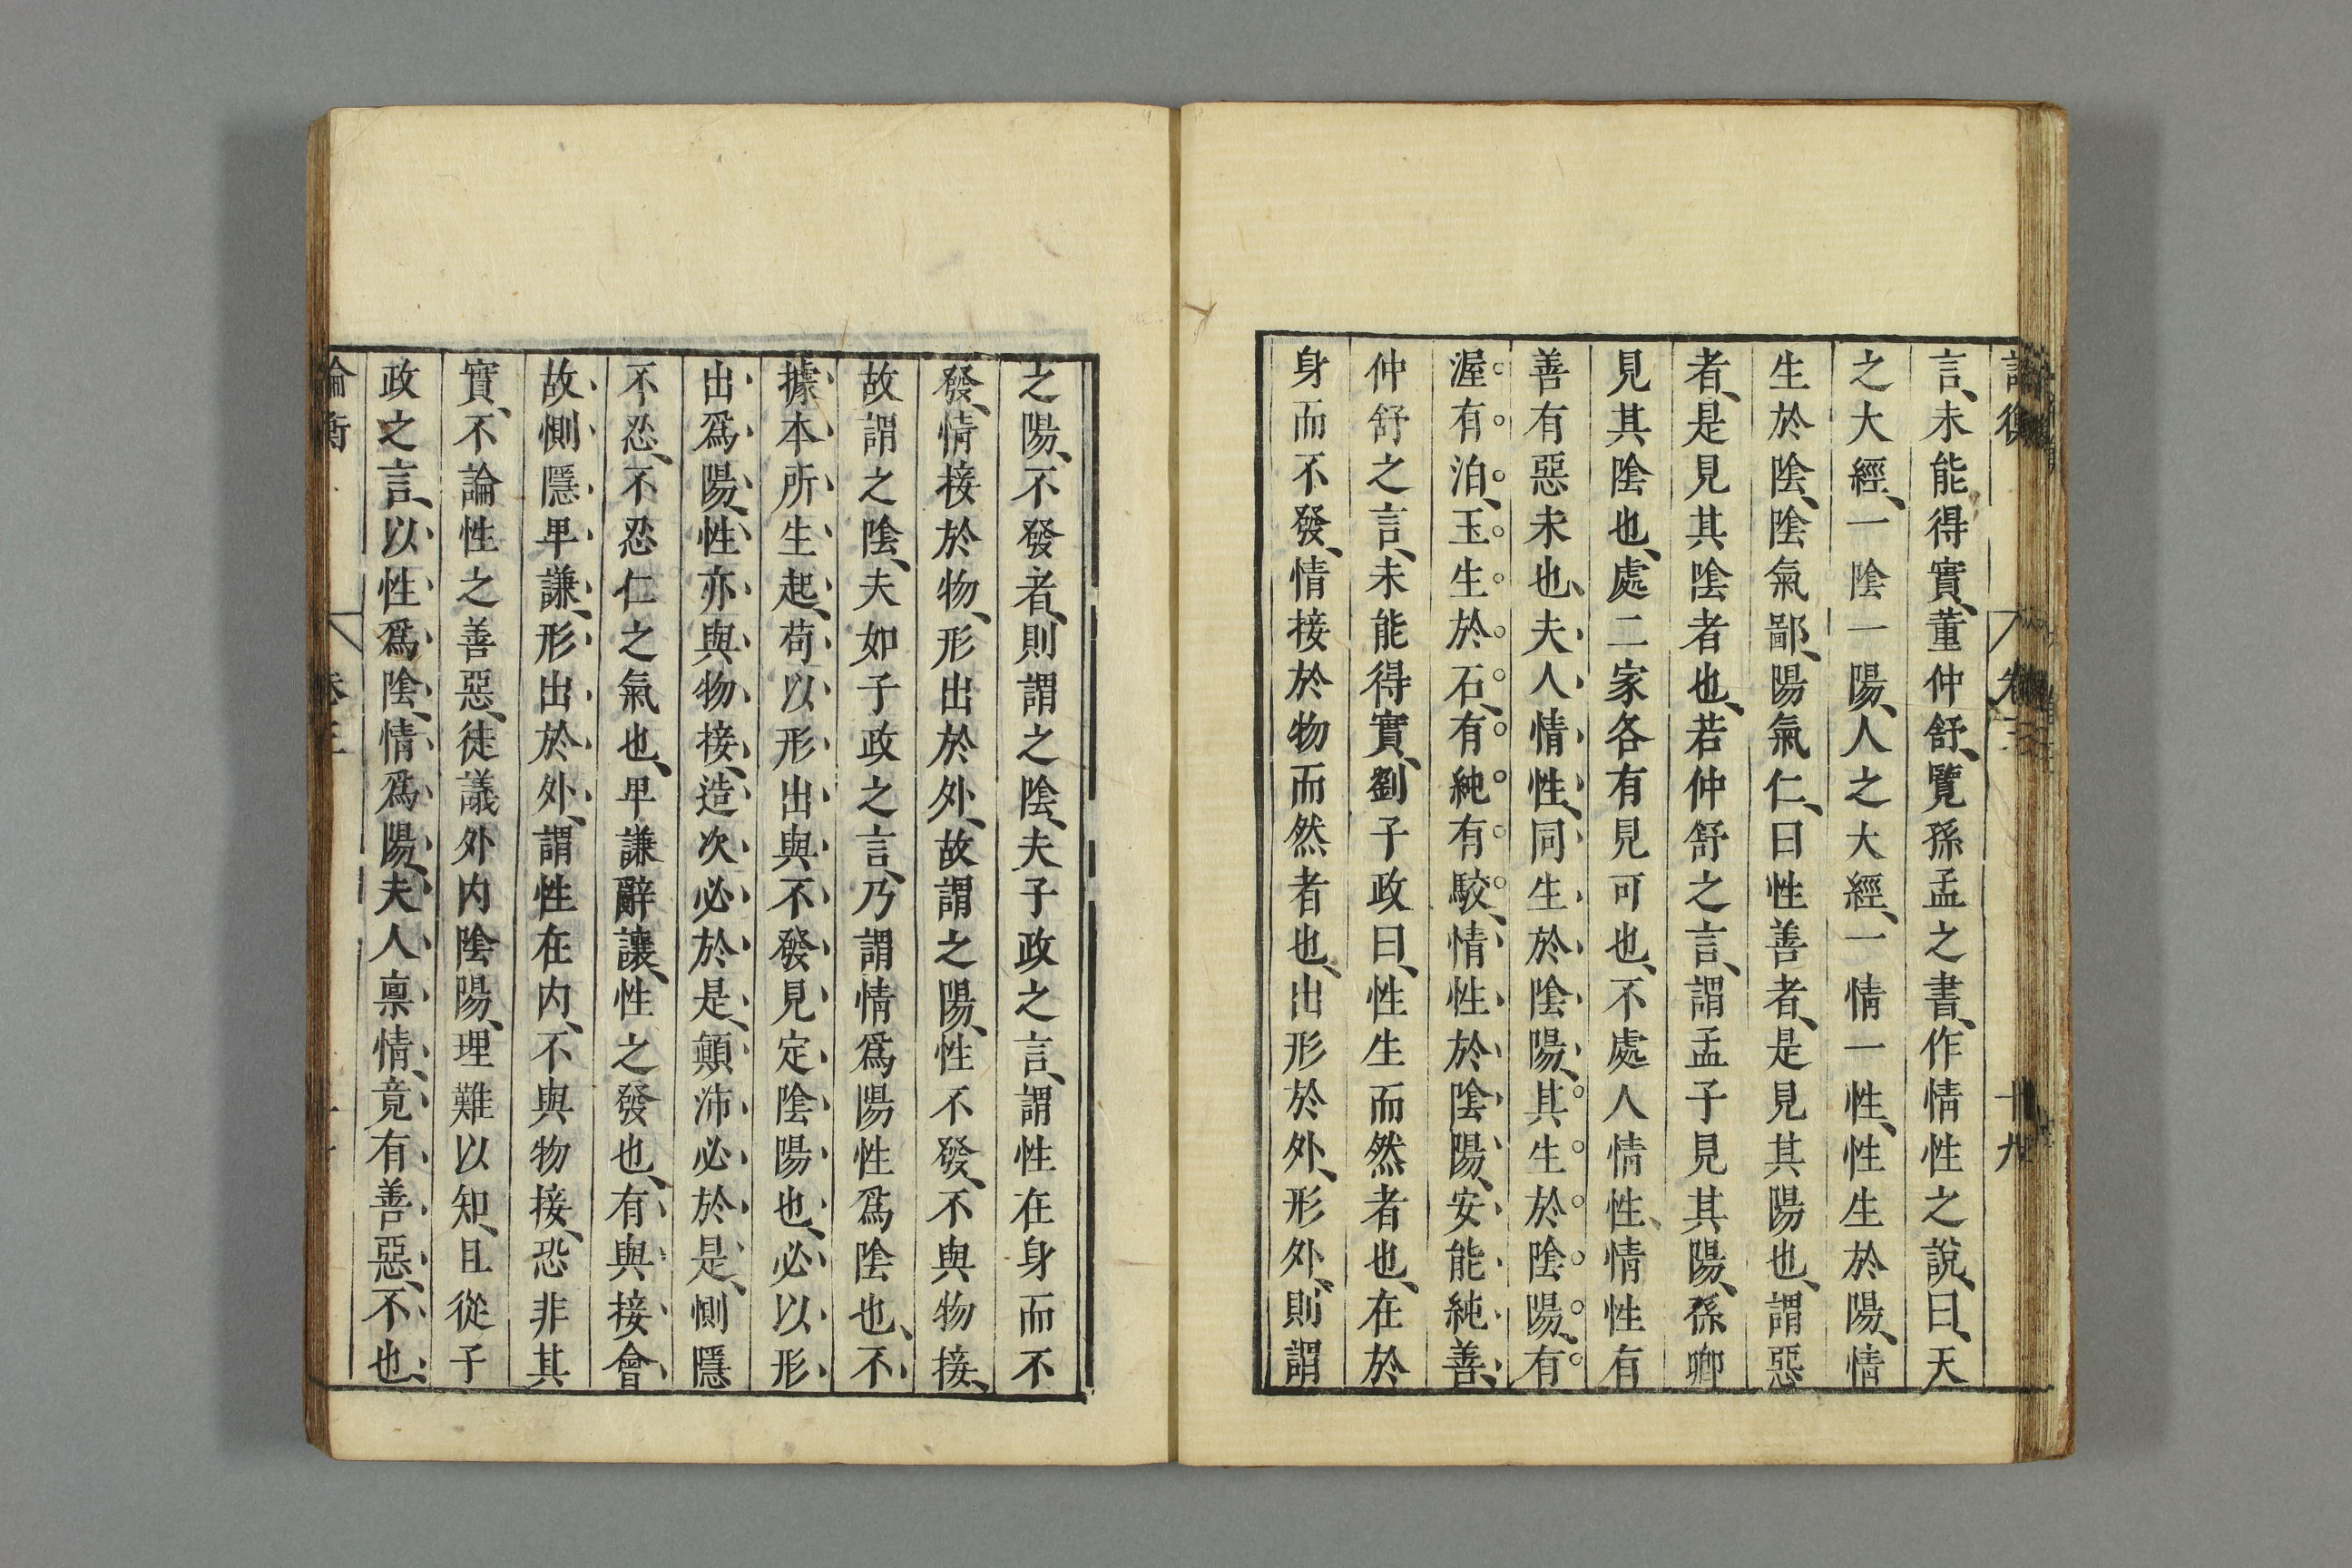 論衡 卷三 十九
言、未能得實、董仲舒、覽孫孟之書、作情性之說、曰、天
之大經、一陰一陽、人之大經、一情一性、性生於陽、情
生於陰、陰氣鄙、陽氣仁、曰性善者、是見其陽也、謂惡
者、是見其陰者也、若仲舒之言、謂孟子見其陽、孫卿
見其陰也、處二家各有見可也、不處人情性、情性有
善有惡未也、夫人情性、同生於陰陽、其生於陰陽、有
渥有泊、玉生於石、有純有駮、情性於陰陽、安能純善、
仲舒之言、未能得實、劉子政曰、性生而然者也、在於
身而不發、情接於物而然者也、出形於外、形外、則謂
之陽、不發者、則謂之陰、夫子政之言、謂性在身而不
發、情接於物、形出於外、故謂之陽、性不發、不與物接、
故謂之陰、夫如子政之言、乃謂情爲陽性爲陰也、不
據本所生起、苟以形出與不發見定陰陽也、必以形
出爲陽、性亦與物接、造次必於是、顛沛必於是、惻隱
不忍、不忍仁之氣也、卑謙辭讓、性之發也、有與接會、
故惻隱卑謙、形出於外、謂性在内、不與物接、恐非其
實、不論性之善惡、徒議外内陰陽、理難以知、且從子
政之言、以性爲陰、情爲陽、夫人禀情、竟有善惡、不也、
論衡 卷三